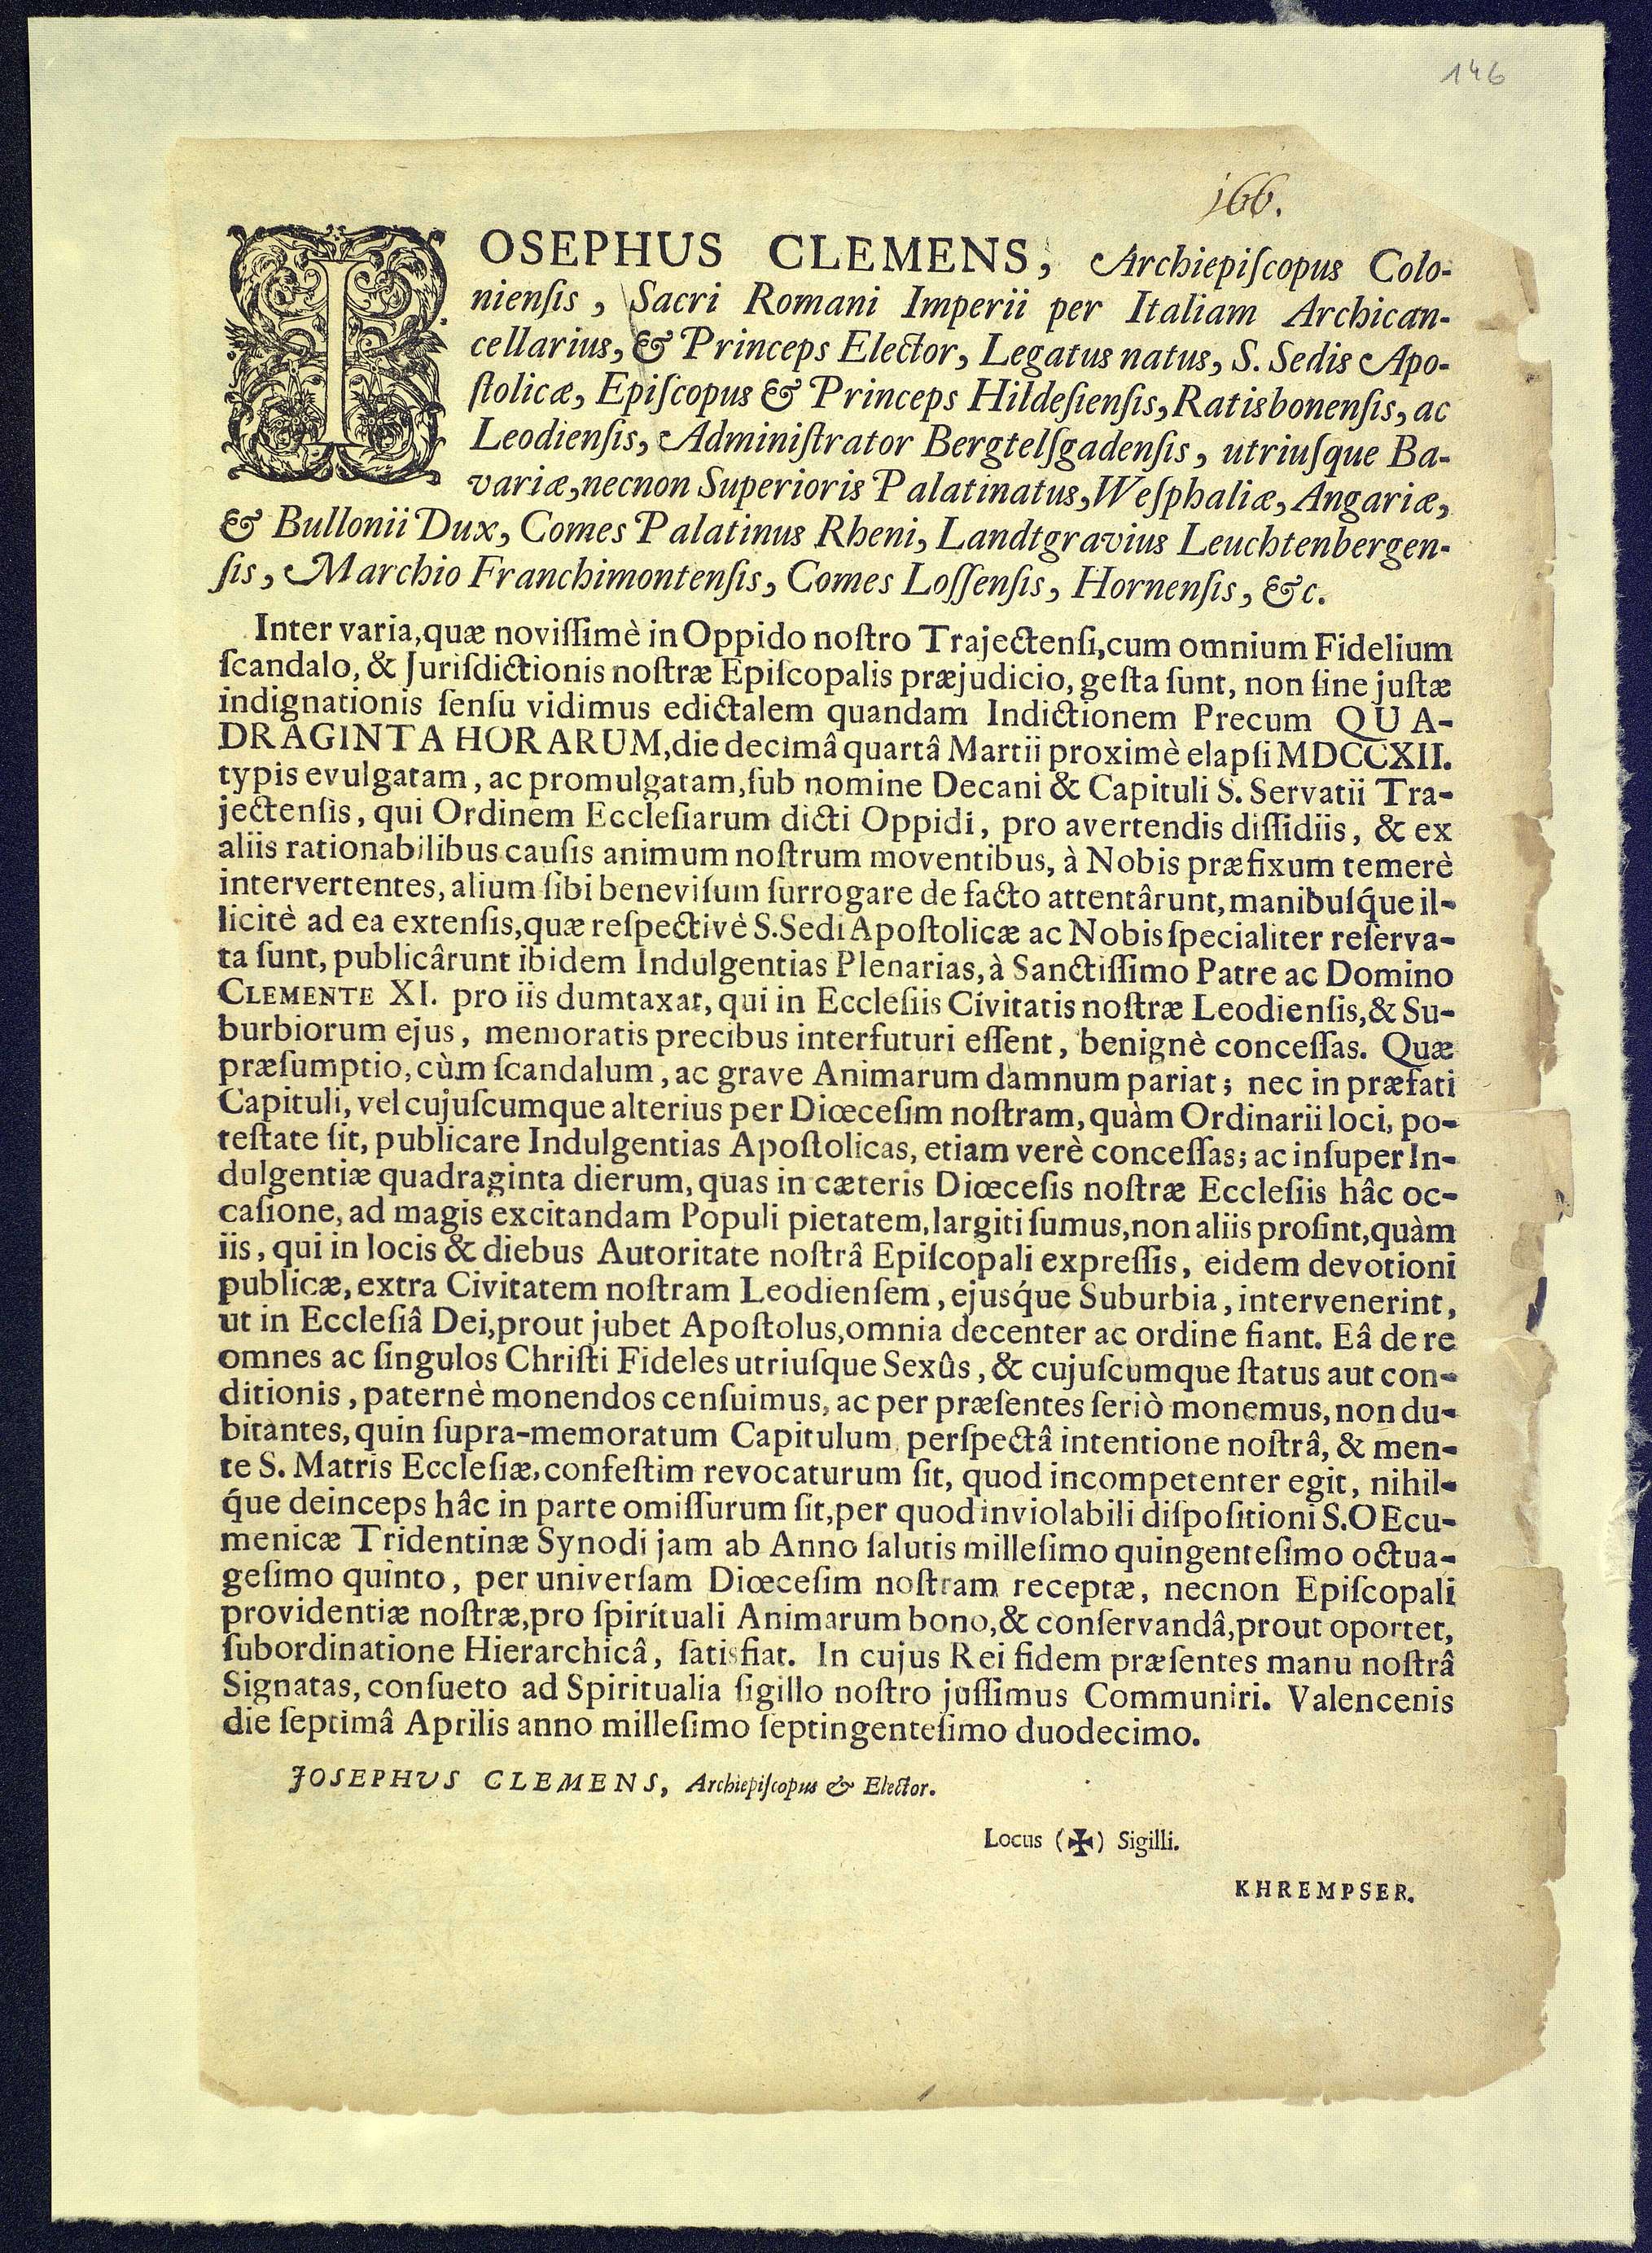 146
166.
IOSEPHUS CLEMENS, Archiepiſcopus Colo-
nienſis, Sacri Romani Imperii per Italiam Archican-
cellarius, & Princeps Elector, Legatus natus, S. Sedis Apo-
ſtolicæ, Epiſcopus & Princeps Hildeſienſis, Ratisbonenſis, ac
Leodienſis, Adminiſtrator Bergtelſgadenſis, utriuſque Ba-
variæ, necnon Superioris Palatinatus, Weſphaliæ, Angariæ,
& Bullonii Dux, Comes Palatinus Rheni, Landtgravius Leuchtenbergen-
ſis, Marchio Franchimontenſis, Comes Loſſenſis, Hornenſis, &c.
Inter varia, quæ noviſſimè in Oppido noſtro Trajectenſi, cum omnium Fidelium
ſcandalo, & Juriſdictionis noſtræ Epiſcopalis præjudicio, geſta ſunt, non ſine juſtæ
indignationis ſenſu vidimus edictalem quandam Indictionem Precum QUA-
DRAGINTA HORARUM, die decimâ quartâ Martii proximè elapſi MDCCXII.
typis evulgatam, ac promulgatam, ſub nomine Decani & Capituli S. Servatii Tra-
jectenſis, qui Ordinem Eccleſiarum dicti Oppidi, pro avertendis diſſidiis, & ex
aliis rationabilibus cauſis animum noſtrum moventibus, à Nobis præfixum temerè
intervertentes, alium ſibi beneviſum ſurrogare de facto attentârunt, manibuſq́ue il-
licitè ad ea extenſis, quæ reſpectivè S. Sedi Apoſtolicæ ac Nobis ſpecialiter reſerva-
ta ſunt, publicârunt ibidem Indulgentias Plenarias, à Sanctiſſimo Patre ac Domino
CLEMENTE XI. pro iis dumtaxat, qui in Eccleſiis Civitatis noſtræ Leodienſis, & Su-
burbiorum ejus, memoratis precibus interfuturi eſſent, benignè conceſſas. Quæ
præſumptio, cùm ſcandalum, ac grave Animarum damnum pariat; nec in præfati
Capituli, vel cujuſcumque alterius per Diœceſim noſtram, quàm Ordinarii loci, po-
teſtate ſit, publicare Indulgentias Apoſtolicas, etiam verè conceſſas; ac inſuper In-
dulgentiæ quadraginta dierum, quas in cæteris Diœceſis noſtræ Eccleſiis hâc oc-
caſione, ad magis excitandam Populi pietatem, largiti ſumus, non aliis proſint, quàm
iis, qui in locis & diebus Autoritate noſtrâ Epiſcopali expreſſis, eidem devotioni
publicæ, extra Civitatem noſtram Leodienſem, ejusq́ue Suburbia, intervenerint,
ut in Eccleſiâ Dei, prout jubet Apoſtolus, omnia decenter ac ordine fiant. Eâ de re
omnes ac ſingulos Chriſti Fideles utriuſque Sexûs, & cujuſcumque ſtatus aut con-
ditionis, paternè monendos cenſuimus, ac per præſentes ſeriò monemus, non du-
bitantes, quin ſupra-memoratum Capitulum, perſpectâ intentione noſtrâ, & men-
te S. Matris Eccleſiæ, confeſtim revocaturum ſit, quod incompetenter egit, nihil-
q́ue deinceps hâc in parte omiſſurum ſit, per quod inviolabili diſpoſitioni S. OEcu-
menicæ Tridentinæ Synodi jam ab Anno ſalutis milleſimo quingenteſimo octua-
geſimo quinto, per univerſam Diœceſim noſtram receptæ, necnon Epiſcopali
providentiæ noſtræ, pro ſpirituali Animarum bono, & conſervandâ, prout oportet,
ſubordinatione Hierarchicâ, ſatisfiat. In cujus Rei fidem præſentes manu noſtrâ
Signatas, conſueto ad Spiritualia ſigillo noſtro juſſimus Communiri. Valencenis
die ſeptimâ Aprilis anno milleſimo ſeptingenteſimo duodecimo.
JOSEPHUS CLEMENS, Archiepiſcopus & Elector.
Locus (✠) Sigilli.
KHREMPSER.